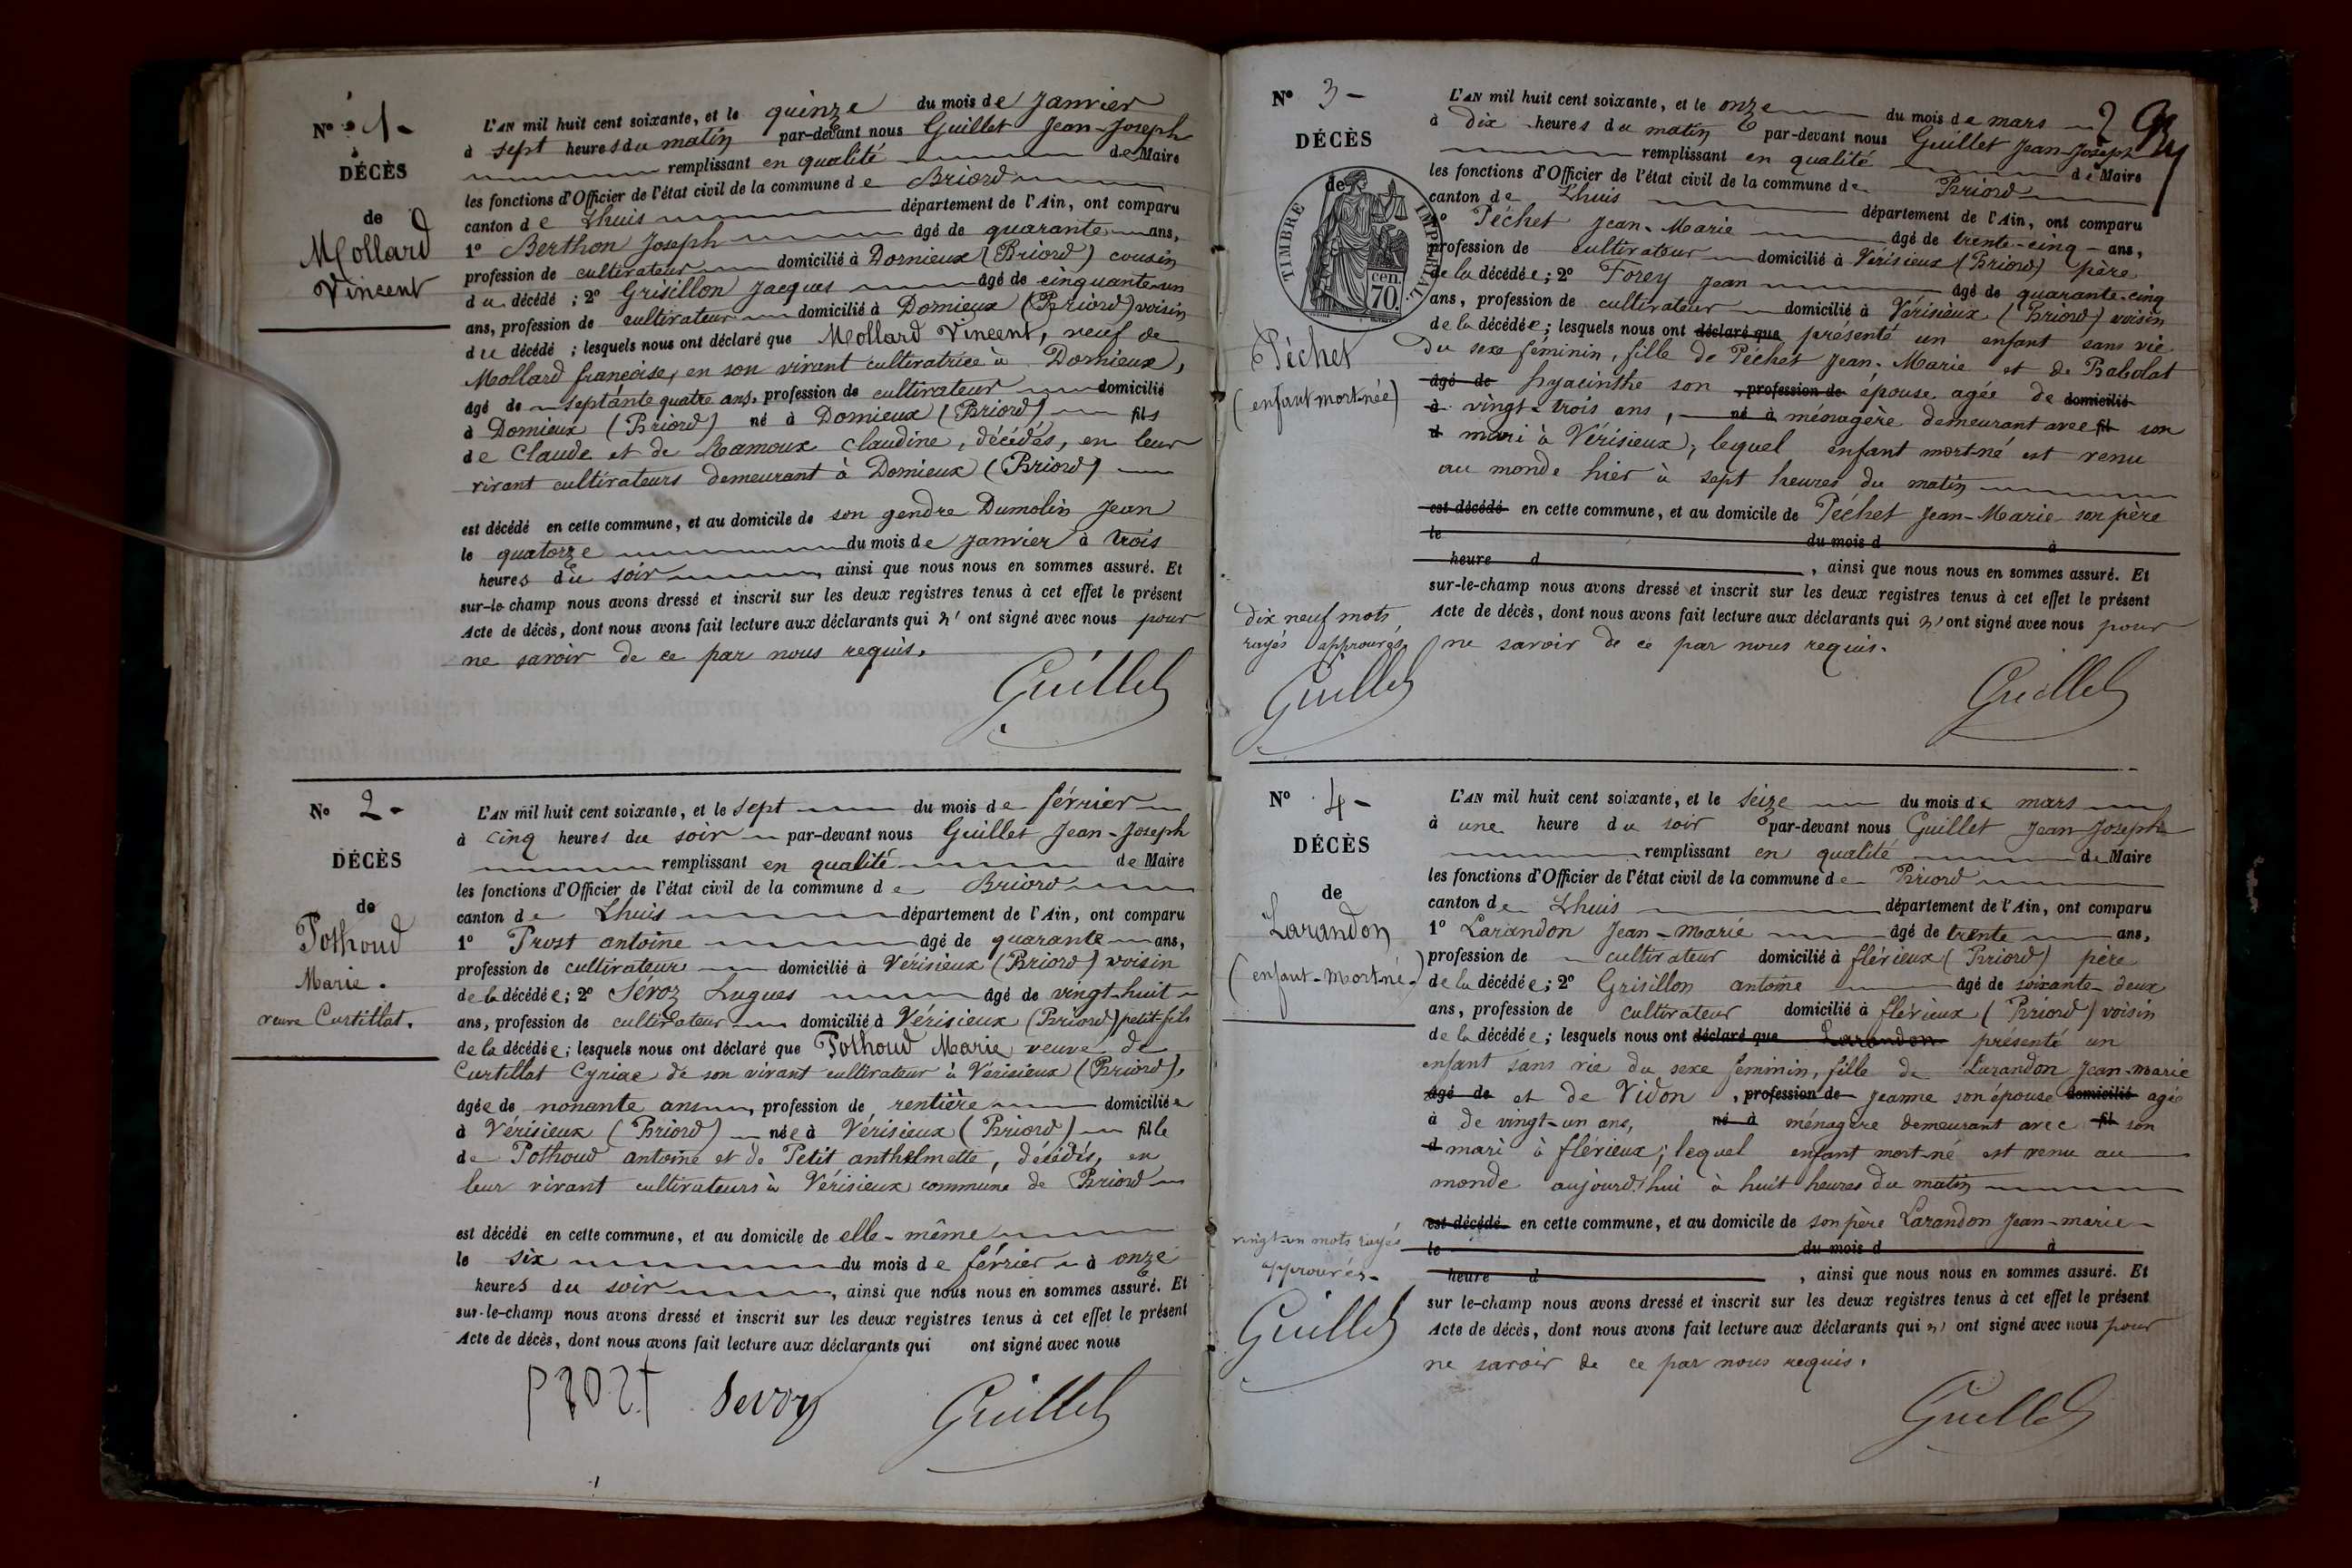 N° 1 -
DÉCÈS
de
Mollard
Vincent
L'AN mil huit cent soixante, et le quinze du mois de janvier
à sept heures du matin par-devant nous Guillet Jean-Joseph
remplissant en qualité de Maire
les fonctions d'Officier de l'état civil de la commune de Briord
canton de Lhuis département de l'Ain, ont comparu
1° Berthon Joseph âgé de quarante ans,
profession de cultivateur domicilié à Dornieux (Briord) cousin
du décédé ; 2° Grisillon Jacques âgé de cinquante-un
ans, profession de cultivateur domicilié à Dornieux (Briord) voisin
du décédé ; lesquels nous ont déclaré que Mollard Vincent, veuf de
Mollard françoise, en son vivant cultivatrice à Dornieux,
âgé de septante quatre ans, profession de cultivateur domicilié
à Dornieux (Briord) né à Dornieux (Briord) fils
de Claude et de Ramoux Claudine, décédés, en leur
vivant cultivateurs demeurant à Dornieux (Briord)
est décédé en cette commune, et au domicile de son gendre Dumolin Jean
le quatorze du mois de janvier à trois
heures du soir, ainsi que nous nous en sommes assuré. Et
sur-le-champ nous avons dressé et inscrit sur les deux registres tenus à cet effet le présent
Acte de décès, dont nous avons fait lecture aux déclarants qui n'ont signé avec nous pour
ne savoir de ce par nous requis.
Guillet
N° 2 -
DÉCÈS
de
Pothoud
Marie.
veuve Curtillat.
L'AN mil huit cent soixante, et le sept du mois de février
à cinq heures du soir par-devant nous Guillet Jean-Joseph
remplissant en qualité de Maire
les fonctions d'Officier de l'état civil de la commune de Briord
canton de Lhuis département de l'Ain, ont comparu
1° Prost antoine âgé de quarante ans,
profession de cultivateur domicilié à Vérisieux (Briord) voisin
de la décédée ; 2° Sevoz Hugues âgé de vingt-huit
ans, profession de cultivateur domicilié à Vérisieux (Briord) petit-fils
de la décédée ; lesquels nous ont déclaré que Pothoud Marie veuve de
Curtillat Cyriac de son vivant cultivateur à Vérisieux (Briord),
âgée de nonante ans, profession de rentière domiciliée
à Vérisieux (Briord) née à Vérisieux (Briord) fille
de Pothoud antoine et de Petit anthelmette, décédés, en
leur vivant cultivateurs à Vérisieux commune de Briord
est décédé en cette commune, et au domicile de elle-même
le six du mois de février à onze
heures du soir, ainsi que nous nous en sommes assuré. Et
sur-le-champ nous avons dressé et inscrit sur les deux registres tenus à cet effet le présent
Acte de décès, dont nous avons fait lecture aux déclarants qui ont signé avec nous
prost Sevoz Guillet
N° 3 -
DÉCÈS
de
TIMBRE IMPÉRIAL
70 cen.
Péchet
(enfant mort-née)
L'AN mil huit cent soixante, et le onze du mois de mars 2
à dix heures du matin par-devant nous Guillet Jean-Joseph
remplissant en qualité de Maire
les fonctions d'Officier de l'état civil de la commune de Briord
canton de Lhuis département de l'Ain, ont comparu
1° Péchet Jean-Marie âgé de trente-cinq ans,
profession de cultivateur domicilié à Vérisieux (Briord) père
de la décédée ; 2° Forey Jean âgé de quarante-cinq
ans, profession de cultivateur domicilié à Vérisieux (Briord) voisin
de la décédée ; lesquels nous ont déclaré que présenté un enfant sans vie
du sexe féminin, fille de Péchet Jean-Marie et de Babolat
âgé de hyacinthe son profession de épouse agée de domicilié
à vingt-trois ans, né à ménagère demeurant avec fil son
d mari à Vérisieux, lequel enfant mort-né est venu
au monde hier à sept heures du matin
est décédé en cette commune, et au domicile de Péchet Jean-Marie son père
le du mois d à
heure d, ainsi que nous nous en sommes assuré. Et
sur-le-champ nous avons dressé et inscrit sur les deux registres tenus à cet effet le présent
Acte de décès, dont nous avons fait lecture aux déclarants qui n'ont signé avec nous pour
ne savoir de ce par nous requis.
dix neuf mots
rayés approuvés
Guillet
Guillet
N° 4 -
DÉCÈS
de
Larandon
(enfant-mort-né-)
L'AN mil huit cent soixante, et le seize du mois de mars
à une heure du soir par-devant nous Guillet Jean-Joseph
remplissant en qualité de Maire
les fonctions d'Officier de l'état civil de la commune de Briord
canton de Lhuis département de l'Ain, ont comparu
1° Larandon Jean-Marie âgé de trente ans,
profession de cultivateur domicilié à flérieux (Briord) père
de la décédée ; 2° Grisillon antoine âgé de soixante-deux
ans, profession de cultivateur domicilié à flérieux (Briord) voisin
de la décédée ; lesquels nous ont déclaré que Larandon présenté un
enfant sans vie du sexe féminin, fille de Larandon Jean-marie
âgé de et de Vidon, profession de Jeanne son épouse domicilié agée
à de vingt-un ans, né à ménagère demeurant avec fil son
d mari à flérieux ; lequel enfant mort-né est venu au
monde aujourd'hui à huit heures du matin
est décédé en cette commune, et au domicile de son père Larandon Jean-marie
le du mois d à
heure d, ainsi que nous nous en sommes assuré. Et
sur le-champ nous avons dressé et inscrit sur les deux registres tenus à cet effet le présent
Acte de décès, dont nous avons fait lecture aux déclarants qui n'ont signé avec nous pour
ne savoir de ce par nous requis.
vingt-un mots rayés
approuvés-
Guillet
Guillet